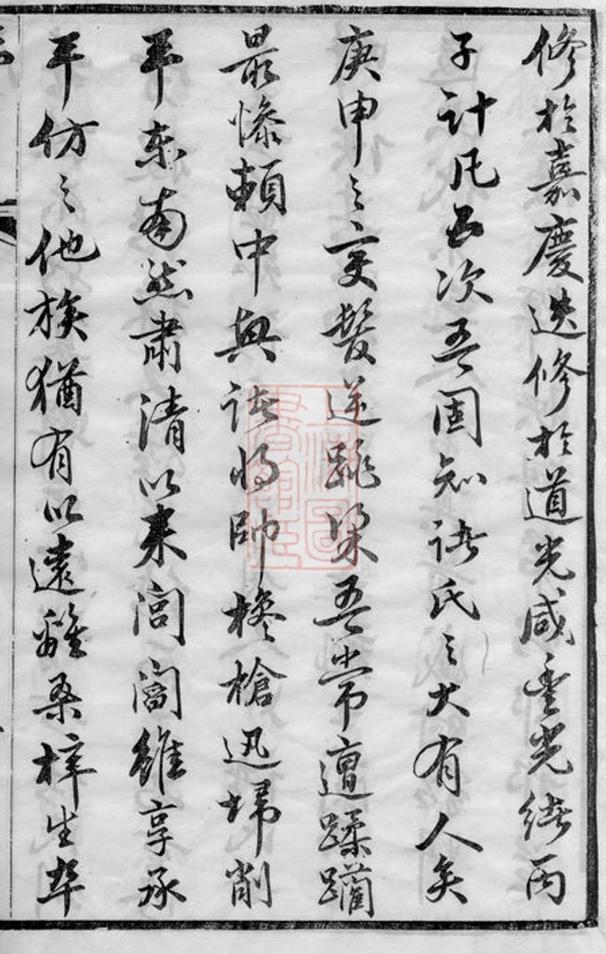 修於嘉慶迭修於道光咸豐光緒丙
子計凡五次吾固知諸氏之大有人矣
庚申之變髮逆跳梁吾常遭蹂躪
最慘賴中興諸將帥欃槍迅埽削
平東南然肅清以來閭閻雖享承
平仿之他族猶有以遠離桑梓生卒